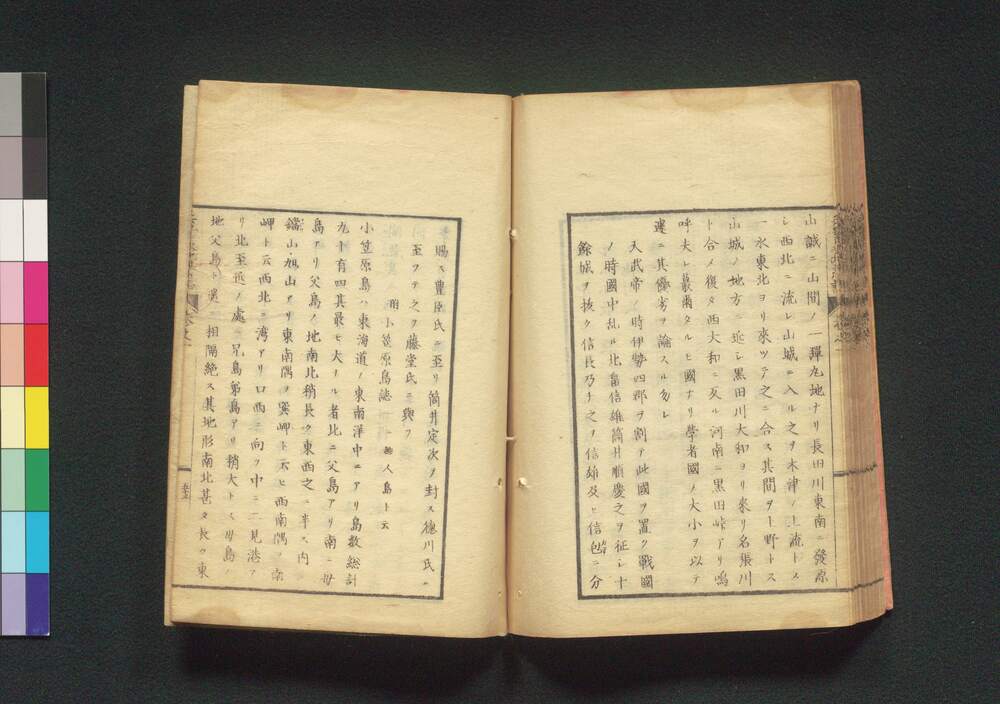 山誠ニ山間ノ一彈丸地ナリ長田川東南ニ發源
シ西北ニ流レ山城ニ入ル之ヲ木津ノ上流トス
一水東北ヨリ來ツテ之ニ合ス其間ヲ上野トス
山城ノ地方ニ近シ黒田川大和ヨリ來リ名張川
ト合メ復タ西大和ニ入ル河南ニ黒田峠アリ嗚
呼夫レ蕞爾タルヒ國ナリ學者國ノ大小ヲ以テ
遽ニ其優劣ヲ論スル勿レ
天武帝ノ時伊勢四郡ヲ割テ此國ヲ置ク戰國
ノ時國中乱ル北畠信雄筒井順慶之ヲ征シ十
餘城ヲ抜ク信長乃チ之ヲ信雄及ヒ信包ニ分
賜ス豊臣氏ニ至リ筒井定次ノ封ス德川氏ニ
至ツテ之ヲ藤堂氏ニ與フ
附 小笠原島誌 一 無人島ト云
小笠原島ハ東海道ノ東南洋中ニアリ島數総計
九十有四其最ヒ大ナル者北ニ父島アリ南ニ母
島アリ父島ノ地南北稍長ク東西之ニ半ス内ニ
鐺山旭山アリ東南隅ヲ巽岬ト云ヒ西南隅ヲ南
岬ト云西北ニ湾アリ口西ニ向フ中ニ二見港ア
リ北至近ノ處ニ兄島弟島アリ稍大トス母島ノ
地父島ト遥ニ相隔絶ス其地形南北甚タ長ク東